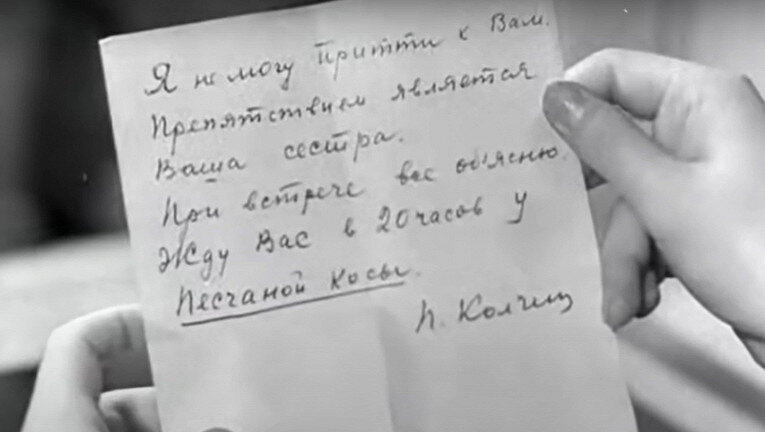 Я не могу притти к Вам.
Препятствием является
Ваша сестра.
При встрече все об'ясню.
Жду Вас в 20 часов у
Песчаной косы.
П. Колчин